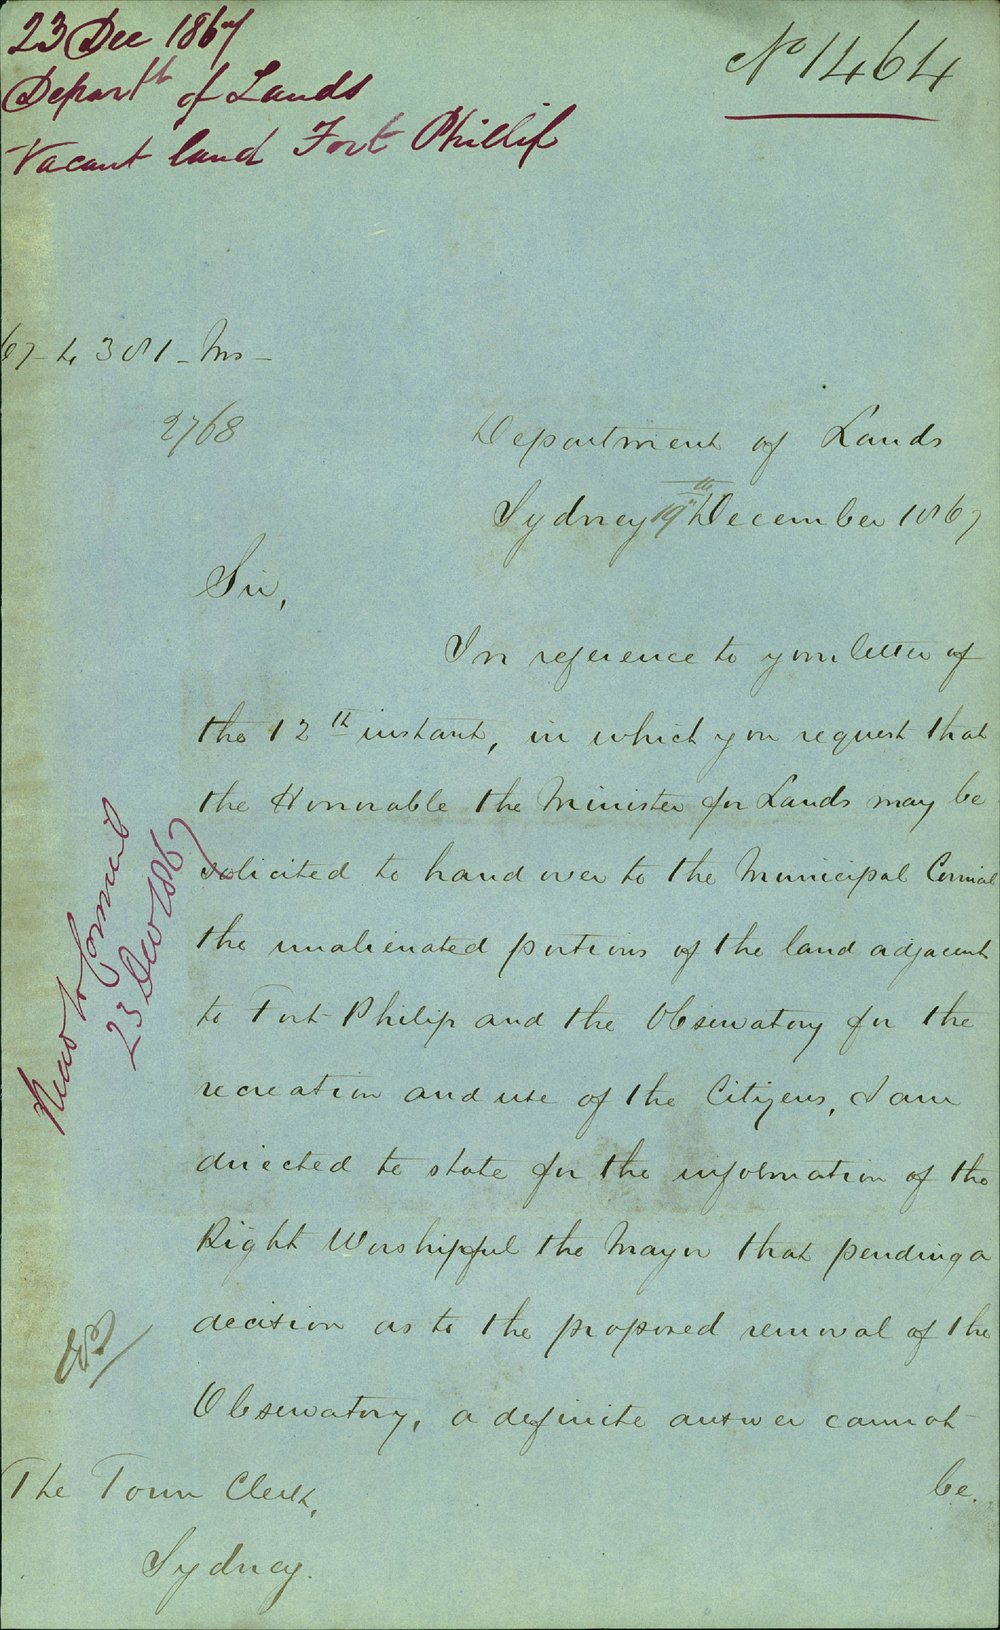 23 Dec 1867
Departt of Lands
Vacant land Fort Phillip
No 1464
67-4381-Ms-
2768
Department of Lands
Sydney 19th December 1867
Sir,
In reference to your letter of
the 12th instant, in which you request that
the Honorable the Minister for Lands may be
solicited to hand over to the Municipal Council
the unalienated portions of the land adjacent
to Fort Philip and the Observatory for the
recreation and use of the Citizens, I am
directed to state for the information of the
Right Worshipful the Mayor that pending a
decision as to the proposed removal of the
Observatory, a definite answer cannot
be
The Town Clerk,
Sydney.
Read to Council
23 Dec 1867